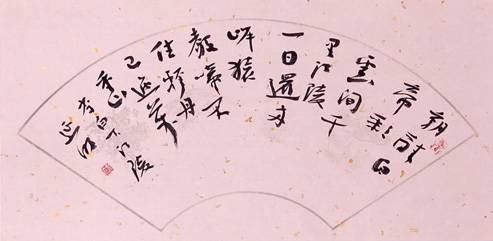 朝辞白
帝彩
雲间千
里江陵
一日還两
岸猿
聲啼不
住輕舟
已过萬
重山
李白下江陵